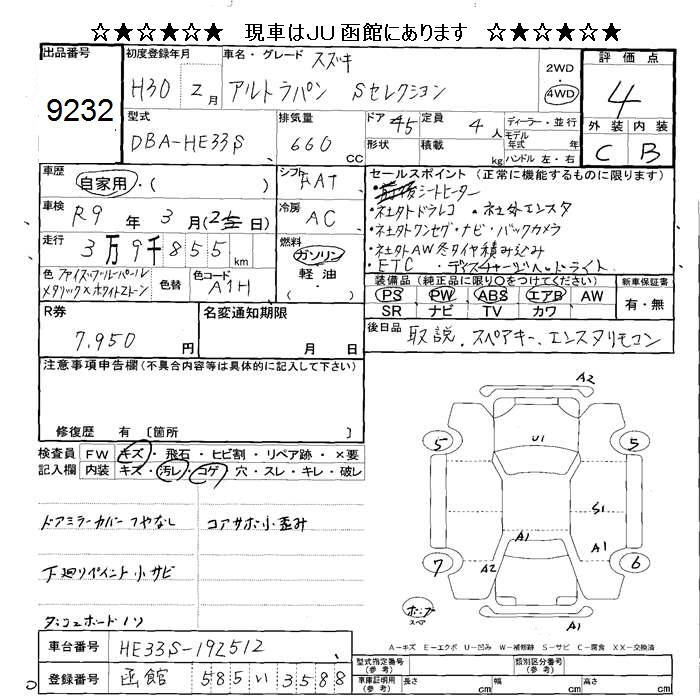 ☆★☆★☆★ 現車はJU函館にあります ☆★☆★☆★
出品番号
9232
初度登録年月
H30 2月
車名・グレード スズキ
アルトラパン Sセレクション
2WD
4WD
評価点
4
外装 内装
C B
型式
DBA-HE33S
排気量
660 cc
ドア 45
定員 4人
形状
積載 kg
ディーラー・並行
モデル年式 年
ハンドル 左・右
車歴
自家用・( )
シフト FAT
車検
R9年3月( 日)
冷房 AC
走行
3万9千855km
燃料
ガソリン
軽油
・( )
色
メタリック×ホワイト2トーン
色替
色コード A1H
セールスポイント(正常に機能するものに限ります)
・シートヒーター
・社外ドラレコ ・社外エンスタ
・社外ワンセグ・ナビ・バックカメラ
・社外AW冬タイヤ積み込み
・ETC ・ディスチャージヘッドライト
装備品(純正品に限り○をつけてください)
PS PW ABS エアB AW
SR ナビ TV カワ
新車保証書
有・無
R券
7,950円
名変通知期限
月 日
後日品 取説、スペアキー、エンスタリモコン
注意事項申告欄(不具合内容等は具体的に記入して下さい)
修復歴 有 〔箇所 〕
検査員記入欄
FW キズ・飛石・ヒビ割・リペア跡・×要
内装 キズ・汚レ・コゲ・穴・スレ・キレ・破レ
ドアミラーカバーつやなし
コアサポ小歪み
下廻りペイント小サビ
ダッシュボードノリ
A2
U1
5 5
S1
A1
A1
A2
7 6
A1
スペア
A-キズ E-エクボ U-凹み W-補修跡 S-サビ C-腐食 XX-交換済
車台番号 HE33S-192512
登録番号 函館 585 い 3588
型式指定番号(参考)
類別区分番号(参考)
車庫証明用(参考) 長さ cm 幅 cm 高さ cm